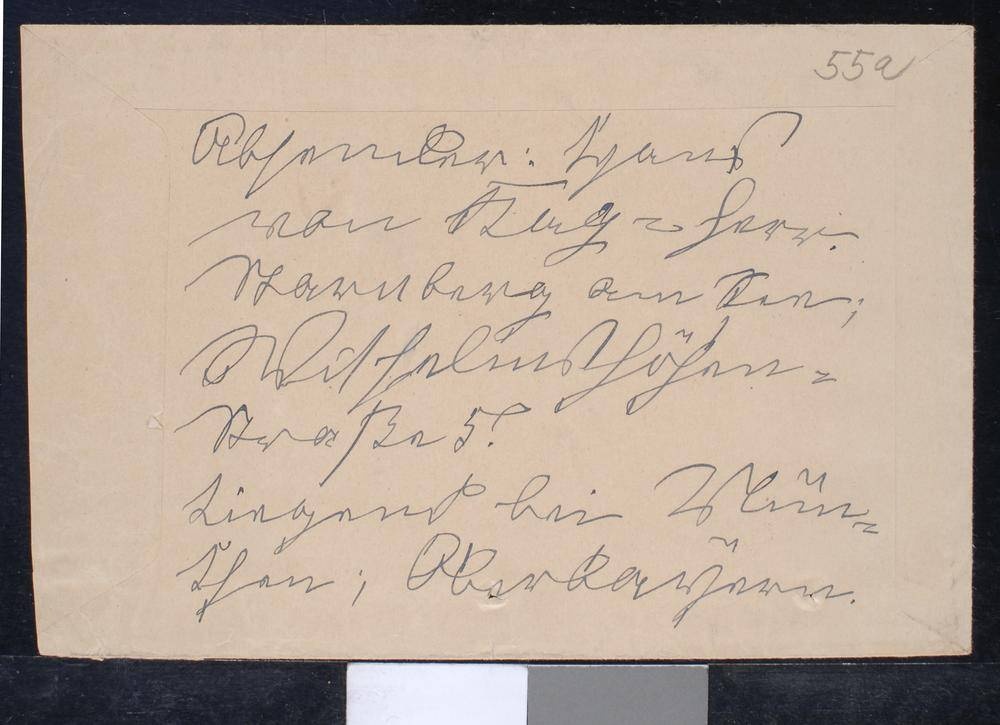 55a
Absender: Hans
von Kag=herr.
Starnberg am See;
Wilhelmshöhen=
straße 5.
Liegend bei Mün=
chen; Oberbayern.